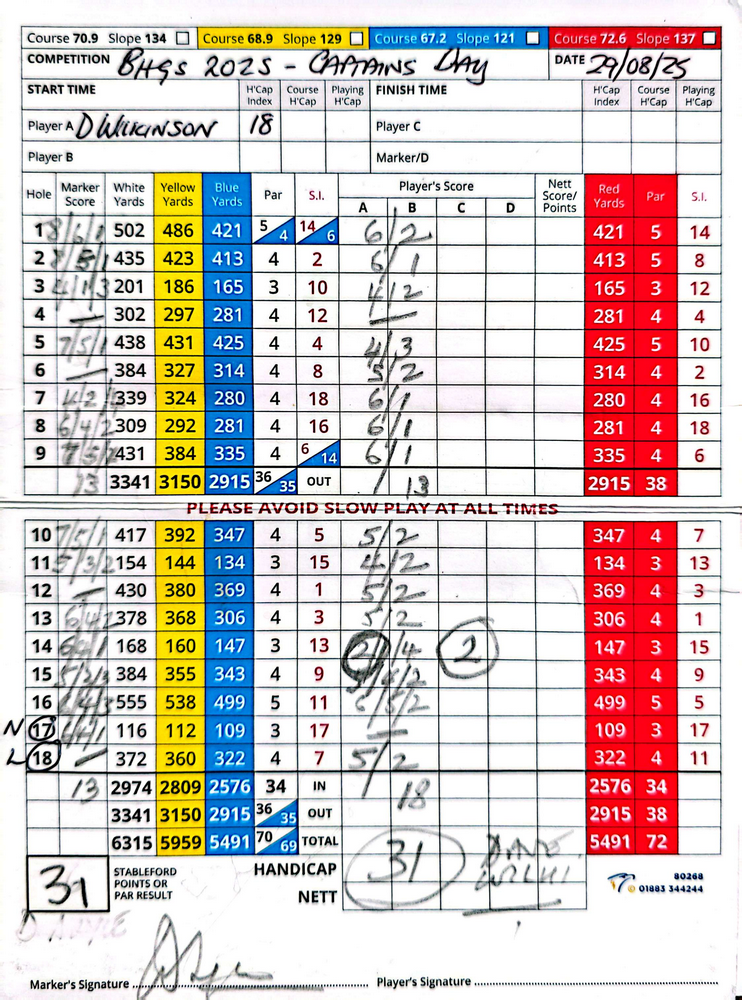 Course 70.9 Slope 134 Course 68.9 Slope 129 Course 67.2 Slope 121 Course 72.6 Slope 137
COMPETITION BHGS 2025 - CAPTAINS DAY DATE 29/08/25
START TIME H'Cap Index Course H'Cap Playing H'Cap FINISH TIME H'Cap Index Course H'Cap Playing H'Cap
Player A D WILKINSON 18 Player C
Player B Marker/D
Hole Marker Score White Yards Yellow Yards Blue Yards Par S.I. Player's Score Nett Score/Points Red Yards Par S.I.
A B C D
1 8/6/1 502 486 421 5 4 14 6 6/2 421 5 14
2 435 423 413 4 2 6/1 413 5 8
3 4/1/3 201 186 165 3 10 4/2 165 3 12
4 — 302 297 281 4 12 — 281 4 4
5 7/5/1 438 431 425 4 4 4/3 425 5 10
6 — 384 327 314 4 8 5/2 314 4 2
7 339 324 280 4 18 6/1 280 4 16
8 6/4/2 309 292 281 4 16 6/1 281 4 18
9 431 384 335 4 6 14 6/1 335 4 6
13 3341 3150 2915 36 35 OUT / 13 2915 38
PLEASE AVOID SLOW PLAY AT ALL TIMES
10 7/5/1 417 392 347 4 5 5/2 347 4 7
11 5/3/2 154 144 134 3 15 4/2 134 3 13
12 — 430 380 369 4 1 5/2 369 4 3
13 6/4/2 378 368 306 4 3 5/2 306 4 1
14 168 160 147 3 13 2/4 2 147 3 15
15 5/2/3 384 355 343 4 9 343 4 9
16 555 538 499 5 11 499 5 5
N 17 116 112 109 3 17 — 109 3 17
L 18 — 372 360 322 4 7 5/2 322 4 11
13 2974 2809 2576 34 IN / 18 2576 34
3341 3150 2915 36 35 OUT 2915 38
6315 5959 5491 70 69 TOTAL 31 DAVE WILKI 5491 72
31 STABLEFORD POINTS OR PAR RESULT HANDICAP
NETT
80268
01883 344244
Marker's Signature Player's Signature